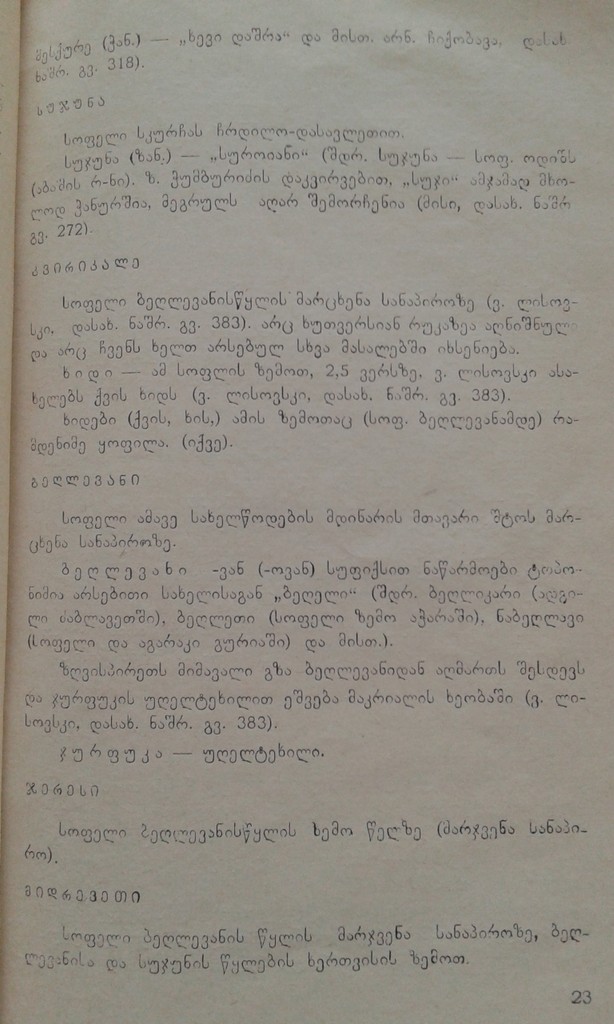 (ჭან.) — „ხევი დაშრა“ და მისთ. არნ. ჩიქობავა, დასახ.
ნაშრ. გვ. 318).
სუჯუნა
სოფელი სკურჩას ჩრდილო-დასავლეთით.
სუჯუნა (ზან.) — „სუროიანი“ (შდრ. სუჯუნა — სოფ. ოდიშს
(აბაშის რ-ნი). ზ. ჭუმბურიძის დაკვირვებით, „სუჯი“ ამჯამად მხო-
ლოდ ჭანურშია, მეგრულს აღარ შემორჩენია (მისი, დასახ. ნაშრ
გვ. 272).
კვირიკალე
სოფელი ბეღლევანისწყლის მარცხენა სანაპიროზე (ვ. ლისოვ-
სკი, დასახ. ნაშრ. გვ. 383). არც ხუთვერსიან რუკაზეა აღნიშნული
და არც ჩვენს ხელთ არსებულ სხვა მასალებში იხსენიება.
ხიდი — ამ სოფლის ზემოთ, 2,5 ვერსზე, ვ. ლისოვსკი ასა-
ხელებს ქვის ხიდს (ვ. ლისოვსკი, დასახ. ნაშრ. გვ. 383).
ხიდები (ქვის, ხის,) ამის ზემოთაც (სოფ. ბეღლევანამდე) რა-
მდენიმე ყოფილა. (იქვე).
ბეღლევანი
სოფელი ამავე სახელწოდების მდინარის მთავარი შტოს მარ-
ცხენა სანაპიროზე.
ბეღლევანი -ვან (-ოვან) სუფიქსით ნაწარმოები ტოპო-
ნიმია არსებითი სახელისაგან „ბეღელი“ (შდრ. ბეღლიკარი (ადგი-
ლი ძაბლავეთში), ბეღლეთი (სოფელი ზემო აჭარაში), ნაბეღლავი
(სოფელი და აგარაკი გურიაში) და მისთ.).
ზღვისპირეთს მიმავალი გზა ბეღლევანიდან აღმართს შესდევს
და ჯურფუკის უღელტეხილით ეშვება მაკრიალის ხეობაში (ვ. ლი-
სოვსკი, დასახ. ნაშრ. გვ. 383).
ჯურფუკა — უღელტეხილი.
ჯერესი
სოფელი ბეღლევანისწყლის ზემო წელზე (მარჯვენა სანაპი-
რო).
მიდრევეთი
სოფელი ბეღლევანის წყლის მარჯვენა სანაპიროზე, ბეღ-
ლევანისა და სუჯუნის წყლების ხერთვისის ზემოთ.
23